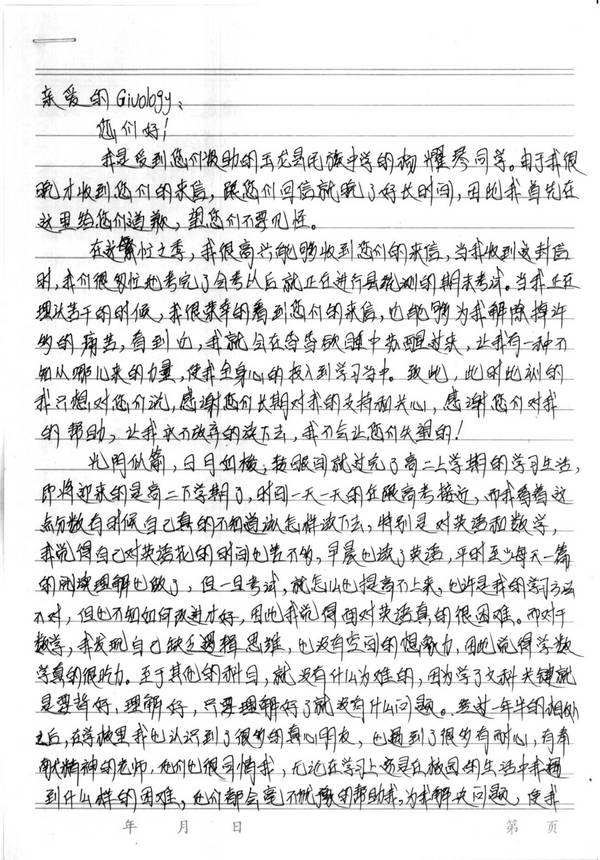 亲爱的Givology:
您们好!
我是受到您们资助的玉龙县民族中学的杨耀琴同学。由于我很
晚才收到您们的来信,跟您们回信就晚了好长时间,因此我首先在
这里给您们道歉,望您们不要见怪。
在这繁忙之季,我很高兴能够收到您们的来信,当我收到这封信
时,我们很匆忙地考完了会考以后就正在进行县统测的期末考试。当我正在
埋头苦干的时候,我很荣幸的看到您们的来信,也能够为我解除掉许
多的痛苦,看到它,我就会在昏昏欲睡中苏醒过来,让我有一种不
知从哪儿来的力量,使我全身心的投入到学习当中。致此,此时此刻的
我只想对您们说,感谢您们长期对我的支持和关心,感谢您们对我
的帮助,让我永不放弃的读下去,我不会让您们失望的!
光阴似箭,日月如梭,转眼间就过完了高二上学期的学习生活,
即将迎来的是高二下学期了,时间一天一天的在跟高考接近,而我看着这
点分数有时候自己真的不知道该怎样读下去,特别是对英语和数学,
我觉得自己对英语花的时间也苦不够,早晨也读了英语,平时至少每天一篇
的阅读理解也做了,但一旦考试,就怎么也提高不上来,也许是我的学习方法
不对,但也不知如何改进才好,因此我觉得面对英语真的很困难。而对于
数学,我发现自己缺乏逻辑思维,也没有空间的想象力,因此觉得学数
学真的很吃力。至于其他的科目,就没有什么为难的,因为学了文科关键就
是要背好,理解好,只要理解好了就没有什么问题。经过一年半的相处
之后,在学校里我也认识到了很多的真心朋友,也遇到了很多有耐心,有奉
献精神的老师,他们也很同情我,无论在学习上还是在校园的生活中我遇
到什么样的困难,他们都会毫不犹豫的帮助我,为我解决问题,使我
年 月 日 第 页